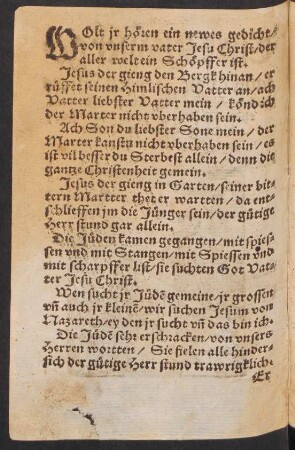 WOlt jr hören ein newes gedicht/
von vnserm vater Jesu Christ/der
aller welt ein Schöpffer ist.
Jesus der gieng den Bergk hinan/er
rüffet seinen Himlischen Vatter an/ach
Vatter liebster Vatter mein/könd ich
der Marter nicht vberhaben sein.
Ach Son du liebster Sone mein/der
Marter kanstu nicht vberhaben sein/es
ist vil besser du Sterbest allein/denn die
gantze Christenheit gemein.
Jesus der gieng in Garten/seiner bit-
tern Martter thet er wartten/da ent-
schlieffen jm die Jünger sein/der gütige
Herr stund gar allein.
Die Jüden kamen gegangen/mit spies-
sen vnd mit Stangen/mit Spiessen vnd
mit scharpffer list/sie suchten Got Vat-
ter Jesu Christ.
Wen sucht jr Jüdē gemeine/jr grossen
vñ auch jr kleinē/wir suchen Jesum von
Nazareth/ey den jr sucht vñ das bin ich.
Die Jüdē sehr erschracken/von vnsers
Herren wortten/Sie fielen alle hinder-
sich der gütige Herr stund trawrigklich.
Er